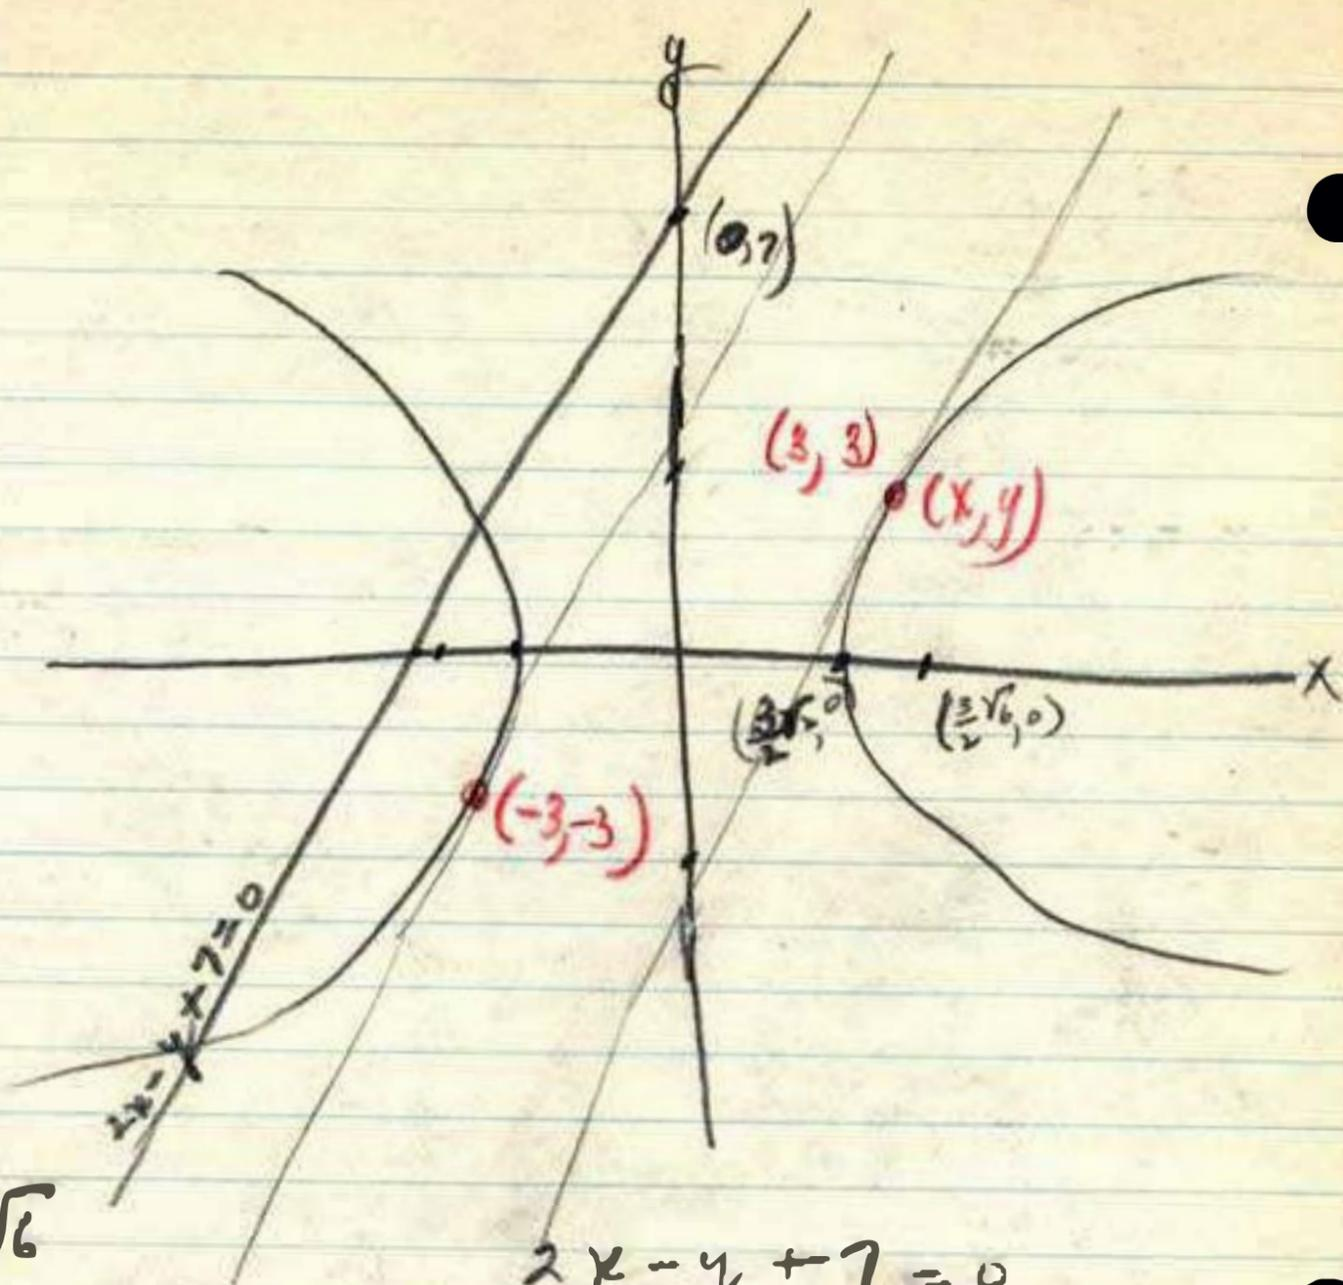 y
(0,7)
(3, 3)
(x,y)
x
(3/2 √6, 0)
(-3,-3)
2x-y+7=0
√6
2x-y+7=0